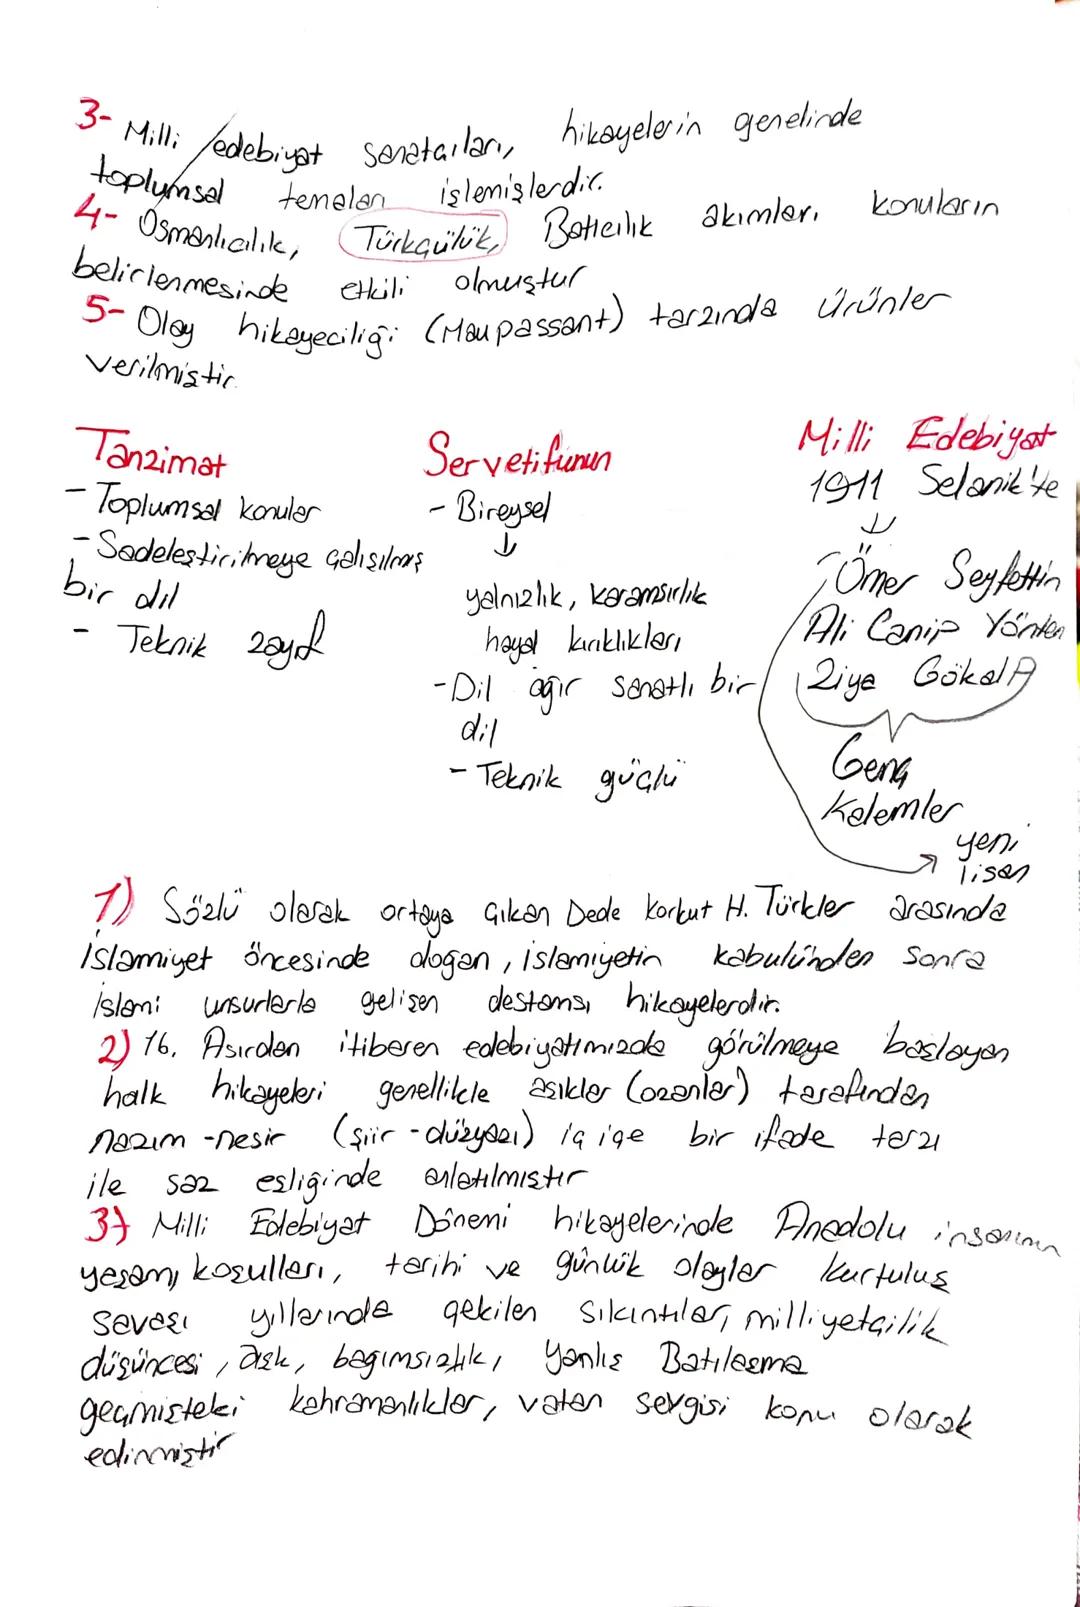 3- Milli edebiyat sanatçıları, hikayelerin genelinde
toplumsal temaları işlemişlerdir.
4- Osmanlıcılık, Türkçülük, Batıcılık akımları konuların
belirlenmesinde etkili olmuştur
5- Olay hikayeciliği (Maupassant) tarzında ürünler
verilmiştir.
Tanzimat
- Toplumsal konular
- Sadeleştirilmeye çalışılmış
bir dil
- Teknik zayıf
Servetifünun
- Bireysel
↓
yalnızlık, karamsırlık
hayal kırıklıkları
- Dil ağır sanatlı bir
dil
- Teknik güçlü
Milli Edebiyat
1911 Selanik'te
↓
Ömer Seyfettin
Ali Canip Yöntem
Ziya Gökalp
Genç
Kalemler
→ yeni
lisan
1) Sözlü olarak ortaya çıkan Dede Korkut H. Türkler arasında
İslamiyet öncesinde doğan, islamiyetin kabulünden sonra
islami unsurlarla gelişen destansı hikayelerdir.
2) 16. Asırdan itibaren edebiyatımızda görülmeye başlayan
halk hikayeleri genellikle aşıklar (ozanlar) tarafından
nazım-nesir (şiir-düzyazı) iç içe bir ifade tarzı
ile saz eşliğinde anlatılmıştır
3) Milli Edebiyat Dönemi hikayelerinde Anadolu insanının
yaşamı, koşulları, tarihi ve günlük olaylar Kurtuluş
savaşı yıllarında çekilen sıkıntılar, milliyetçilik
düşüncesi, aşk, bağımsızlık, yanlış Batılaşma
geçmişteki kahramanlıklar, vatan sevgisi konu olarak
edinmiştir